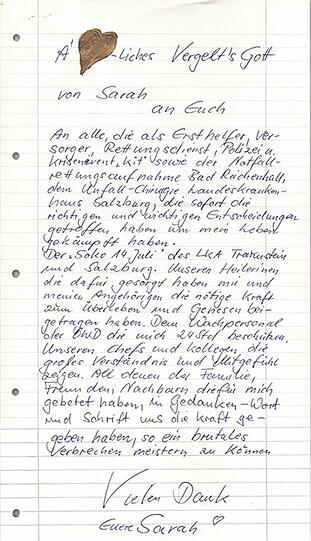 A' -liches Vergelt's Gott
von Sarah
an Euch
An alle, die als Ersthelfer, Ver-
sorger, Rettungsdienst, Polizei u.
krisenevent, kit sowie der Notfall-
rettungsaufnahme Bad Reichenhall,
dem Unfall-Chirugie Landeskranken-
haus Salzburg, die sofort die
richtigen und wichtigen Entscheidungen
getroffen haben um mein Leben
gekämpft haben.
Der "Soko 14 Juli" des LKA Traunstein
und Salzburg. Unseren Heilerinen
die dafür gesorgt haben mir und
meinen Angehörigen die nötige Kraft
zum Überleben und Genesen bei-
getragen haben. Dem Wachpersonal
der die mich 24 Std beschützen.
Unseren Chefs und Kollegen, die
großes Verständnis und Mitgefühl
zeigen. All denen der Familie,
Freunden Nachbarn die für mich
gebetet haben, in Gedanken-Wort
und Schrift uns die Kraft ge-
geben haben, so ein brutales
Verbrechen meistern zu können
Vielen Dank
Euere Sarah ♡